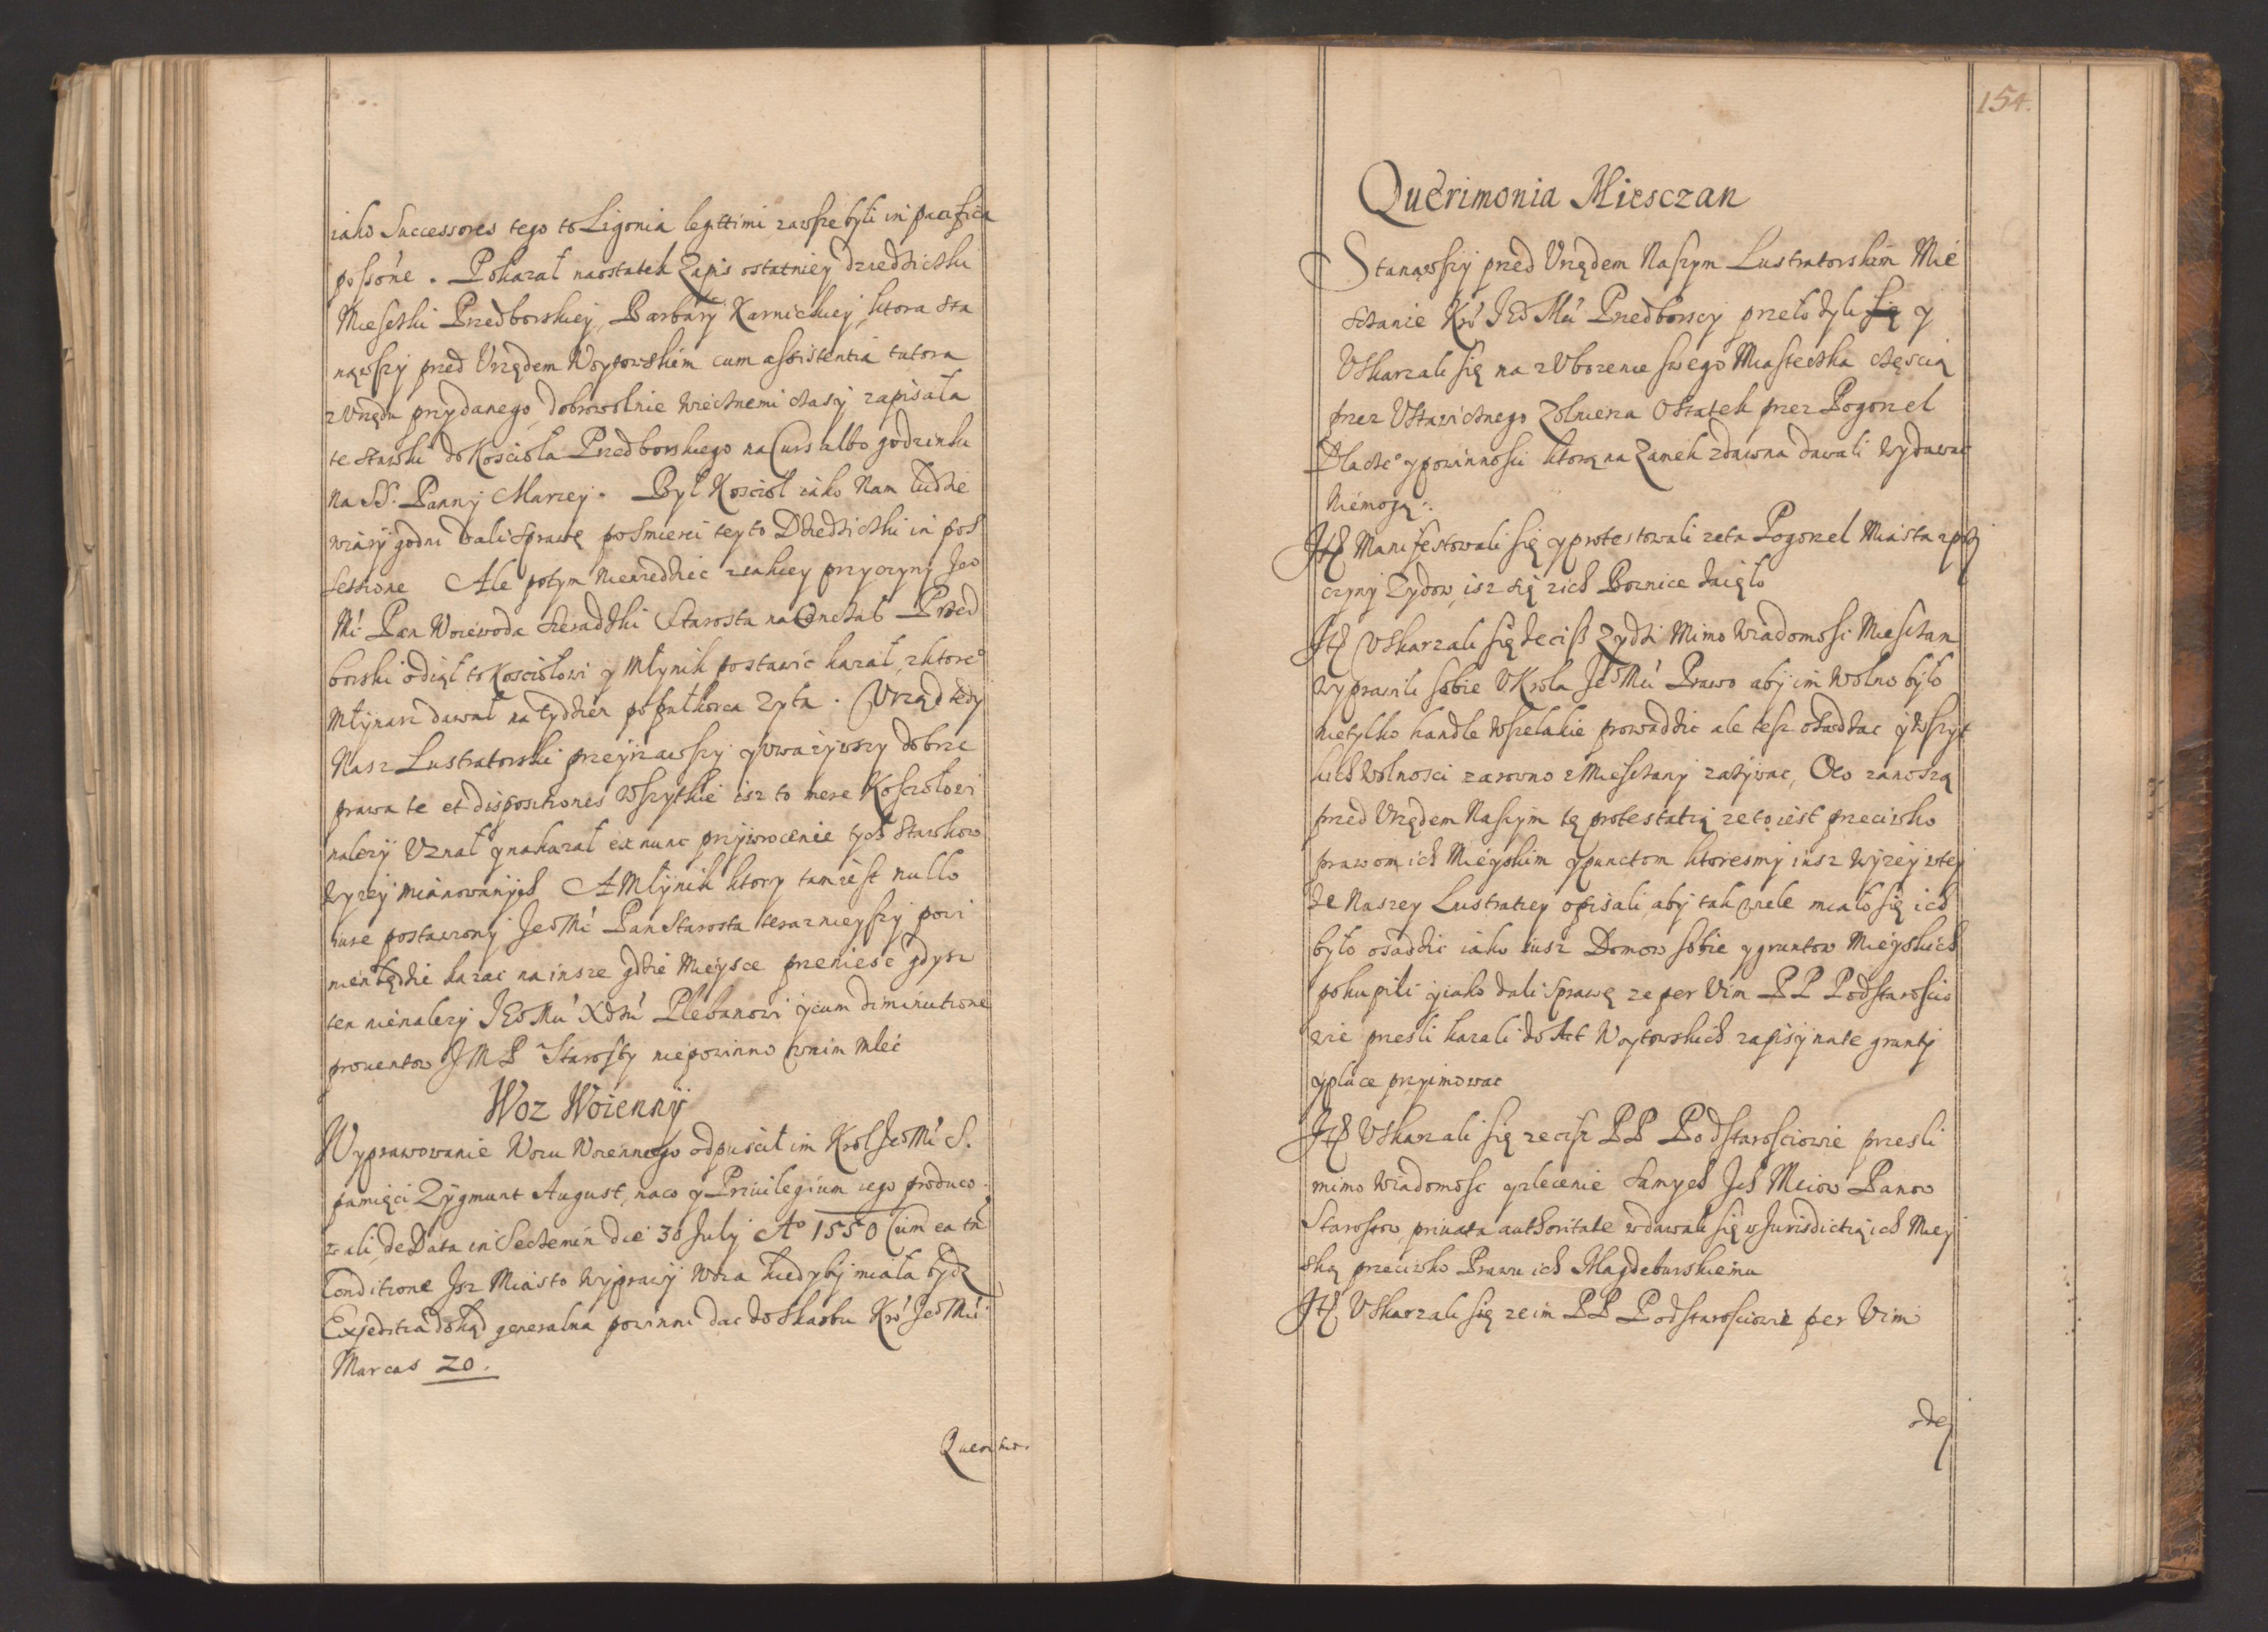 iako Successores tego to Ligonia legittimi zawsze byli in pacifica
possone. Pokazał naostatek Zapis ostatniey dziedziczki
Mieśczki Przedborskiey, Barbary Karnickiey, ktora sta
nąwszy przed Urzędem Woytowskim cum assistentia tutora
z Urzędu przydanego, dobrowolnie wiecznemi czasy zapisała
te stawki do Kościoła Przedborskiego na Curs albo godzinki
na SS. Panny Mariey. Był Kościoł iako Nam ludzie
wiary godni dali sprawę po smierci tey to Dziedziczki in pos
sessione Ale potym niewiedziec z iakiey przyczyny Jeo
Mć Pan Woiewoda Sieradzki Starosta na Przed
borski odiął to Kościołowi y Młynik postawic kazał, z ktoreo
Młynarz dawał na tydzien po pułkorca Zyta. Urząd tedy
Nasz Lustratorski przeyrzawszy y uwazywszy dobrze
prawa te et dispositiones wszytkie isz to mere Kościołowi
nalezy Uznał y nakazał ex nunc przywrocenie tych stawkow
wyzey mianowanych A Młynik ktory tam iest nullo
iure postawiony Jeo Mć Pan Starosta terazniejszy powi
nien będzie kazac na insze gdzie Mieysce przeniesc gdysz
ten nienalezy JEo Mći Xdzu Plebanowi y cum diminutione
prouentow J M P Starosty niepowinno w nim mleć
Woz Woienny
Wyprawowanie Wozu Woiennego odpuścił im Krol Jeo Mć S.
pamięci Zygmunt August, na co y Priuilegium iego produco
wali, de Data in Sechemin die 30 July Ao 1550 Cum ea tn
Conditione Jsz Miasto wyprawy Woza kiedyby miała bydz
Expeditia dokąd generalna powinni dac do skarbu Kró Jeo Mći
Marcas 20.
Querimo.
154.
Querimonia Miesczan
Stanąwszy przed Urzędem Naszym Lustratorskim Mie
sczanie Kró JEo Mći Przedborscy przełozyli się y
Uskarzali się na zUbozenie swego Miasteczka częścią
przez Ustawicznego Zolnierza Ostatek przez Pogorzel
Dlaczeo y powinności ktorą na Zamek zdawna dawali wydawac
Niemogą.
Jtem Manifestowali się y protestowali ze ta Pogorzel Miasta z przy
czyny Zydow, isz się z ich Boznice zaięło
Jtem Uskarzali się ze ciż Zydzi Mimo wiadomość Miesczan
wyprawili sobie U Krola Jeo Mći Prawo aby im wolno było
nietylko handle wszelakie prowadzic ale tesz osadzac y wszyt
kich wolnosci zarowno z Miesczany zazywac, Oco zanoszą
przed Urzędem Naszym tę protestatią ze to iest przeciwko
prawom ich Mieyskim y punctom ktoresmy iusz wyzey w tey
ze Naszey Lustratiey opisali aby tak wiele miało się ich
było osadzic iako iusz Domow sobie y gruntow Mieyskich
pokupili y iako dali sprawę ze per Vim PP Podstarościo
wie przesli kazali do Act Woytowskich zapisy na te grunty
y place przyimowac
Jtem Uskarzali się ze ciż PP Podstarościowie przesli
mimo wiadomość y zlecenie samych Jch Mciow Panow
Starostow, priuata authoritate wdawali się w Jurisdictią ich Miey
ską przeciwko Prawu ich Magdeburskiemu
Jtem Uskarzali się ze im PP Podstarościowie per Vim